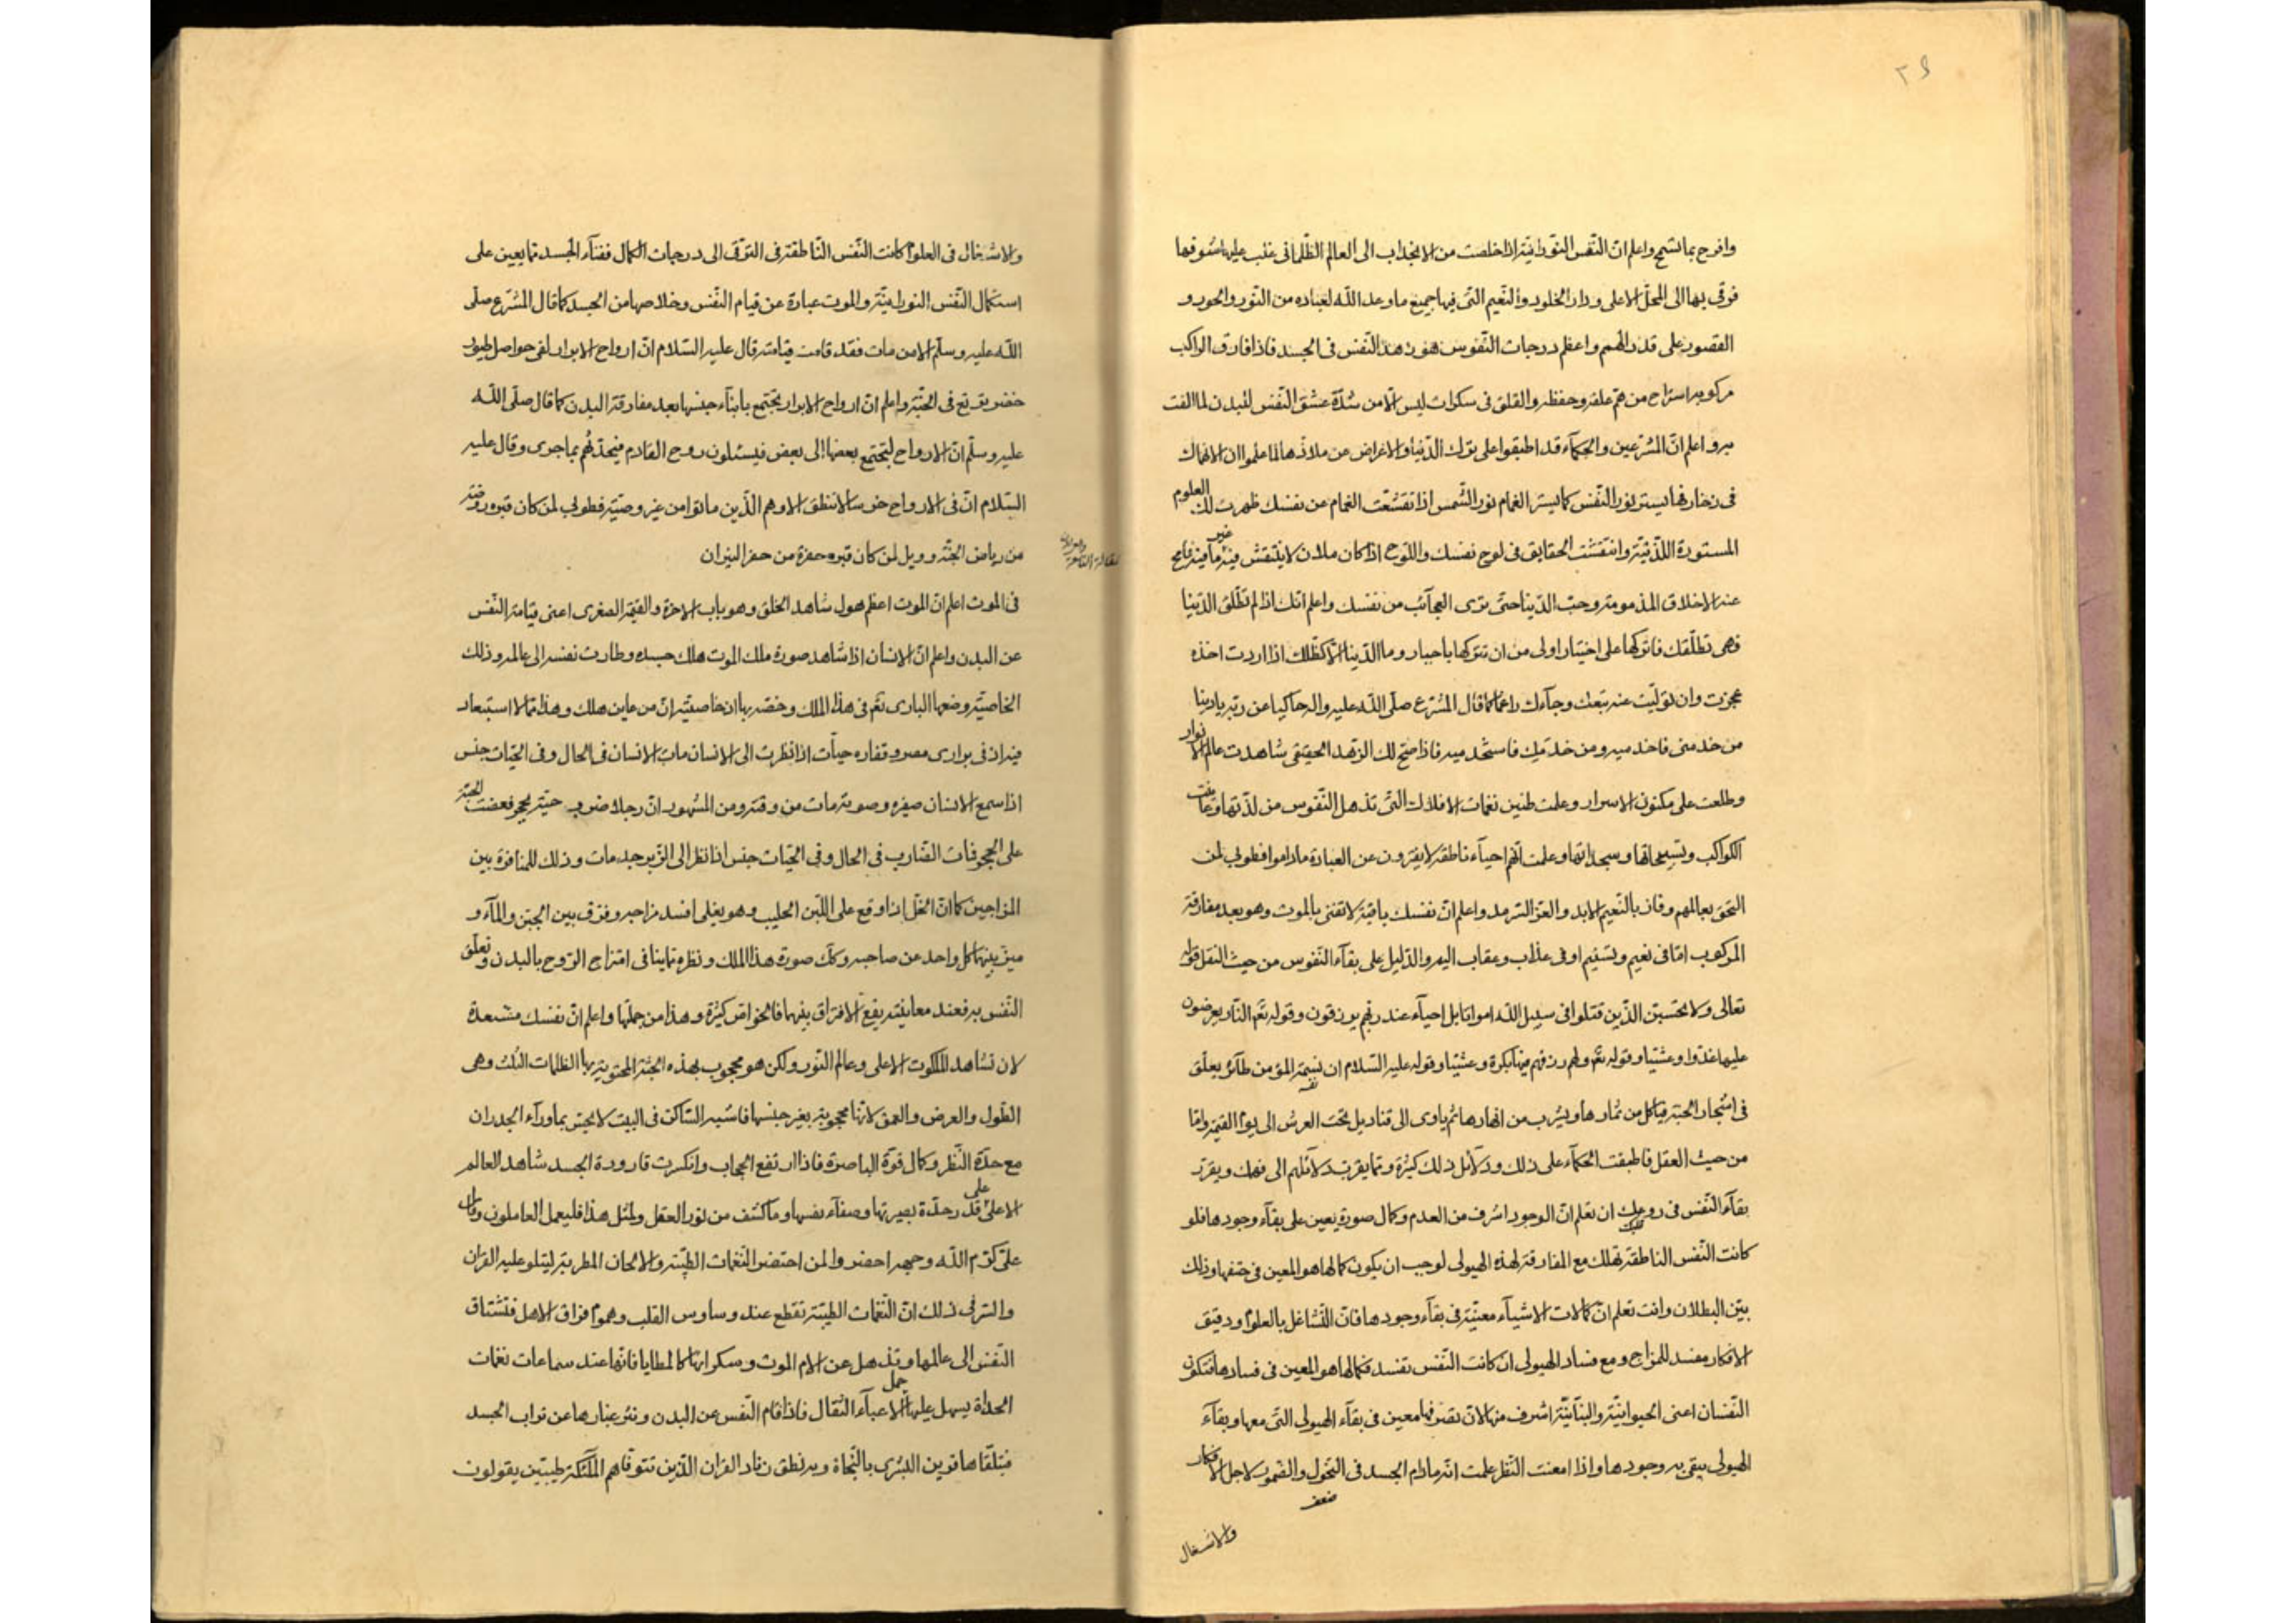 ٢٩
وافرح بما تسمح واعلم انّ النّفس النّورانيّة اذا خلصت من الانجذاب الى العالم الظّلمانى غلب عليها شوقها
فرقى بها الى المحلّ الاعلى ودار الخلود والنّعيم التّى فيها جميع ما وعد اللّه لعباده من النّور والحور و
القصور على قدر الهمم واعظم درجات النّفوس هون هذا النّفس فى الجسد فاذا فارق الراكب
مركوبه استراح من همّ علفه وحفظه والقلق فى سكرات ليس الّا من شدّة عشق النّفس للبدن لما الفت
به واعلم انّ المشرّعين والحكمآء قد اطبقوا على ترك الدّنيا والاعراض عن ملاذّها لما علموا ان الانهماك
فى زخارفها يستر نور النّفس كما يستر الغمام نور الشّمس اذا تقشّعت الغمام عن نفسك ظهرت لك العلوم
المستورة اللّدنيّة وانتقشت الحقايق فى لوح نفسك واللّوح اذا كان ملان لا ينتقش فيه غير ما فيه فامح
عنه الاخلاق المذمومة وحبّ الدّنيا حتّى ترى العجآئب من نفسك واعلم انّك اذا لم تطلّق الدّنيا
فهى تطلّقك فاتركها على اختيار اولى من ان تتركها باجبار وما الدّنيا الّا كظلّك اذا اردت اخذه
عجزت وان تولّيت عنه تبعك وجآءك راغما كما قال المشرّع صلّى اللّه عليه واله حاكيا عن ربّه يا دنيا
من خدمنى فاخدميه ومن خدمك فاستخدميه فاذا صحّ لك الزّهد الحقيقى شاهدت عالم الانوار
وطلعت على مكنون الاسرار وعلمت طنين نغمات الافلاك التّى تذهل النّفوس من لذّتها وعاينت
الكواكب وتسبيحاتها وسجداتها وعلمت انّهم احيآء ناطقة لا يفترون عن العبادة ما داموا فطوبى لمن
التحق بعالمهم وفاز بالنّعيم الابد والعزّ السّرمد واعلم انّ نفسك باقية لا تفنى بالموت وهو بعد مفارقة
المركوب امّا فى نعيم وتسنيم او فى عذاب وعقاب اليم والدّليل على بقآء النّفوس من حيث النقل قوله
تعالى ولا تحسبنّ الّذين قتلوا فى سبيل اللّه امواتا بل احيآء عند ربّهم يرزقون وقوله تعّ النّار يعرضون
عليها غدّوا وعشيّا وقوله تعّ ولهم رزقهم فيها بكرة وعشيّا وقوله عليه السّلام ان نسمة المؤمن طآئر يعلّق
فى اشجار الجنّة فيأكل من ثمارها ويشرب من انهارها ثم يأوى الى قناديل تحت العرش الى يوم القيمة وامّا
من حيث العقل فاطبقت الحكمآء على ذلك ودلآئل ذلك كثيرة وممّا يقرّب دلآئلهم الى فهمك ويقرّر
بقآء النّفس فى روعك ان تعلم انّ الوجود اشرف من العدم وكمال صورة يعين على بقآء وجودها فلو
كانت النّفس الناطقة تهلك مع المفارقة لهذه الهيولى لوجب ان يكون كمالها هو المعين فى حتفها وذلك
بيّن البطلان وانت تعلم انّ كمالات الاشيآء معنيّة فى بقآء وجودها فانّ التّشاغل بالعلوم ودقيق
الافكار مفسد للمزاج ومع فساد الهيولى ان كانت النّفس تفسد فكمالها هو المعين فى فسادها فتكون
النّفسان اعنى الحيوانيّة والنّباتيّة اشرف منها لانّ تصرّفهما معين فى بقآء الهيولى التّى معها وبقآء
الهيولى يبقى به وجودها واذا امعنت النّظر علمت انّه ما دام الجسد فى النّحول والضّمور لاجل الافكار
ضعف
والاشتغال
والاشتغال فى العلوم كانت النّفس النّاطقة فى التّرقّى الى درجات الكمال ففنآء الجسد ممّا يعين على
استكمال النّفس النورانيّة والموت عبارة عن قيام النّفس وخلاصها من الجسد كما قال المشرّع صلّى
اللّه عليه وسلّم الا من مات فقد قامت قيامته قال عليه السّلام انّ ارواح الابرار لفى حواصل طيور
خضر يرتع فى الجنّة واعلم انّ ارواح الابرار يجتمع بابنآء جنسها بعد مفارقة البدن كما قال صلّى اللّه
عليه وسلّم انّ الارواح لتجتمع بعضها الى بعض فيسئلون روح القادم فيحدّثهم بما جرى وقال عليه
السّلام انّ فى الارواح خرسا لا تنطق الا وهم الّذين ماتوا من غير وصيّة فطوبى لمن كان قبره روضة
من رياض الجنّة وويل لمن كان قبره حفرة من حفر النيران
فى الموت اعلم انّ الموت اعظم هول شاهد الخلق وهو باب الاخرة والقيمة الصغرى اعنى قيامة النّفس
عن البدن واعلم انّ الانسان اذا شاهد صورة ملك الموت هلك جسده وطارت نفسه الى عالمه وذلك
الخاصيّة وضعها البارى تعّ فى هذا الملك وخصّه بها ان خاصيّته انّ من عاين هلك وهذا ممّا لا استبعاد
فيه اذ فى برارى مصر وقفاره حيّات اذا نظرت الى الانسان مات الانسان فى الحال وفى الحيّات جنس
اذا سمع الانسان صفيره وصوته مات من وقته ومن المشهور انّ رجلا ضرب حيّة بحجر فعضّت الحيّة
على الحجر فمات الضّارب فى الحال وفى الحيّات جنس اذا نظر الى الزّبرجد مات وذلك للمنافرة بين
المزاجين كما انّ الخلّ اذا وقع على اللّبن الحليب وهو يغلى افسد مزاجه وفرّق بين الجبن والمآء و
ميّز بينهما كل واحد عن صاحبه وكك صورة هذا الملك ونظره تباينا فى امتزاج الرّوح بالبدن وتعلّق
النّفس به فعند معاينته يقع الافتراق بينهما فالخواصّ كثيرة وهذا من جملتها واعلم انّ نفسك مستعدة
لان تشاهد الملكوت الاعلى وعالم النّور ولكن هو محجوب بهذه الجثّة المحتوية بها الظّلمات الثّلث وهى
الطّول والعرض والعمق لانّها محجوبة بغير جنسها فاشبه السّاكن فى البيت لا يحسّ بما ورآء الجدران
مع حدّة النّظر وكمال قوّة الباصرة فاذا ارتفع الحجاب وانكسرت قارورة الجسد شاهد العالم
الاعلى على قدر حدّة بصيرتها وصفآء نفسها وما كشف من نور العقل ولمثل هذا فليعمل العاملون وقال
علىّ كرّم اللّه وجهه احضروا لمن احتضر النّغمات الطّيّبة والالحان المطربة ليتلو عليه القران
والسّر فى ذلك انّ النّغمات الطّيّبة تقطع عنه وساوس القلب وهموم فراق الاهل فتشتاق
النّفس الى عالمها وتذهل عن الام الموت وسكراتها كالمطايا فانّها عند سماعات نغمات
الحداة يسهل عليها حمل الاعبآء الثّقال فاذا قام النّفس عن البدن ونثر غبارها عن تراب الجسد
فتلقّاها قرين البشرى بالنّجاة وبه نطق القران الّذين تتوفّاهم الملٓئكة طيّبين يقولون